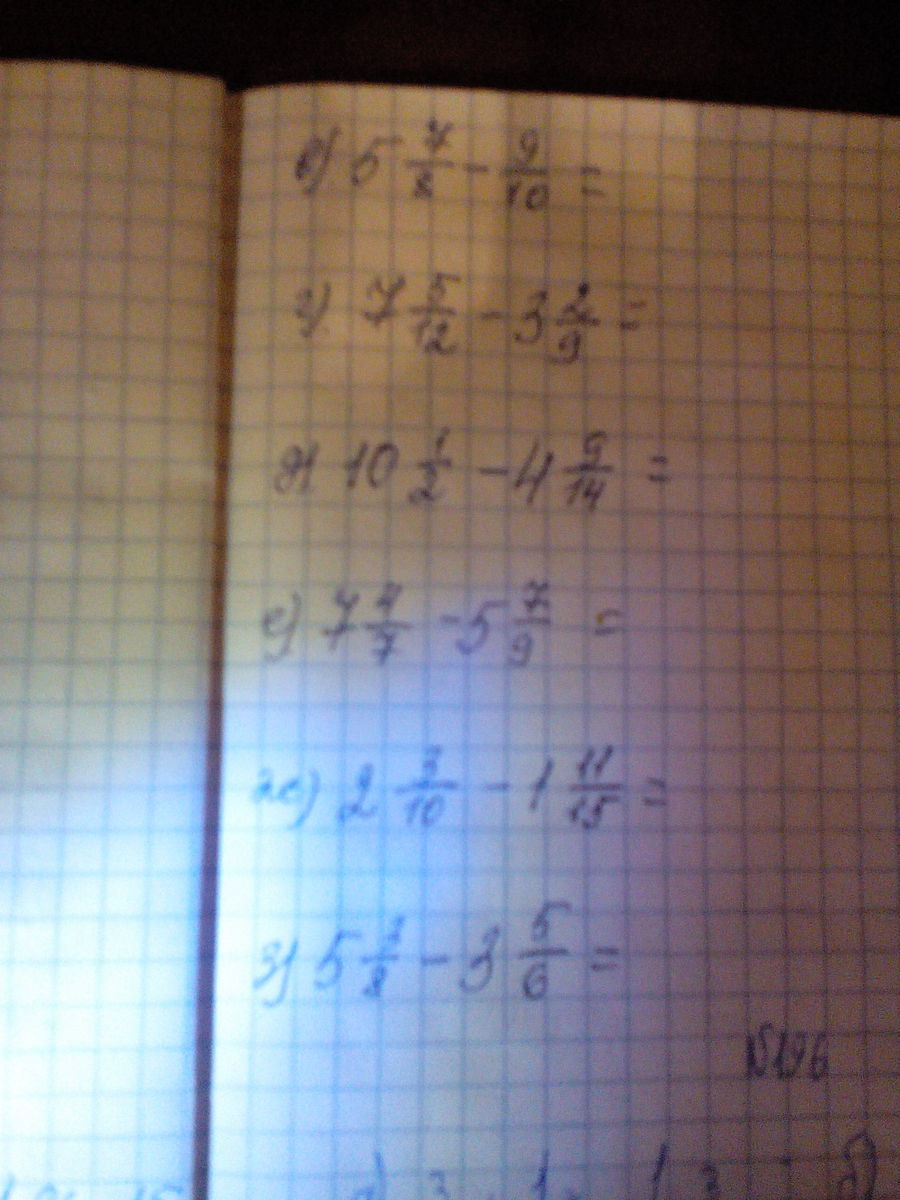 в) 5 7/8 - 9/10 =
г) 7 5/12 - 3 2/9 =
д) 10 1/2 - 4 9/14 =
е) 7 4/7 - 5 7/9 =
ж) 2 3/10 - 1 11/15 =
з) 5 3/8 - 3 5/6 =
№196